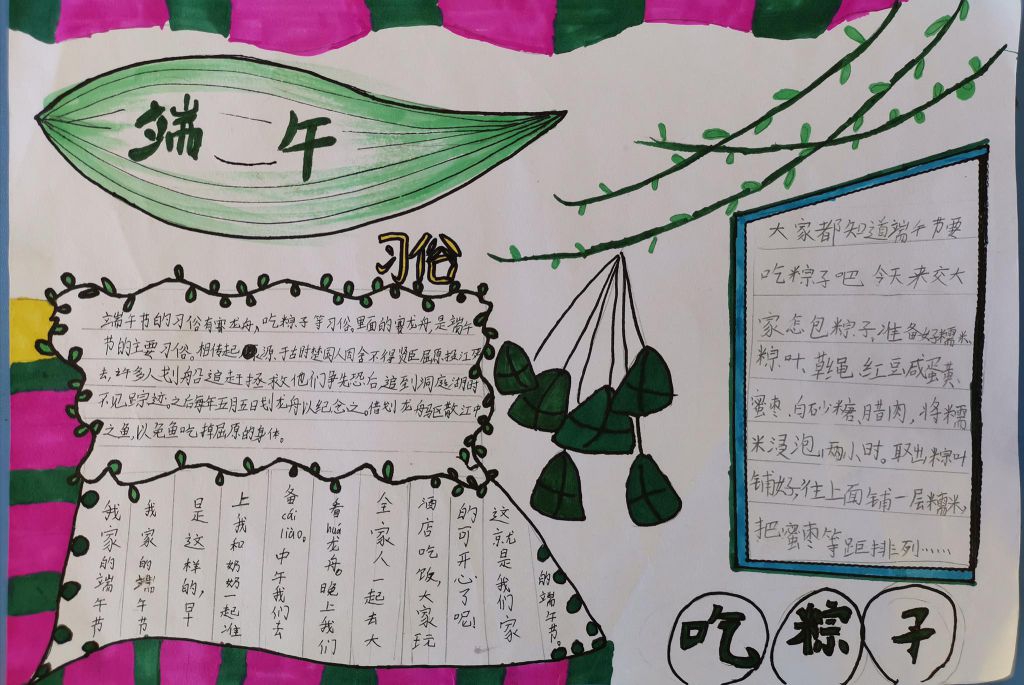 端午
习俗
端午节的习俗有赛龙舟，吃粽子等习俗。里面的赛龙舟，是端午
节的主要习俗。相传起源于古时楚国人因舍不得贤臣屈原投江死
去，许多人划船追赶拯救他们争先恐后，追到洞庭湖时
不见踪迹。之后每年五月五日划龙舟以纪念之。借划龙舟驱散江中
之鱼，以免鱼吃掉屈原的身体。
大家都知道端午节要
吃粽子吧 今天来交大
家怎包粽子，准备好糯米、
粽叶、草绳、红豆咸蛋黄、
蜜枣、白砂糖、腊肉，将糯
米浸泡，两小时。取出粽叶
铺好，往上面铺一层糯米，
把蜜枣等距排列……
我家的端午节
我家的端午节
是这样的，早
上我和奶奶一起准
备cái liào。中午我们去
看huá龙舟。晚上我们
全家人一起去大
酒店吃饭，大家玩
的可开心了呢！
这就是我们家
的端午节。
吃粽子